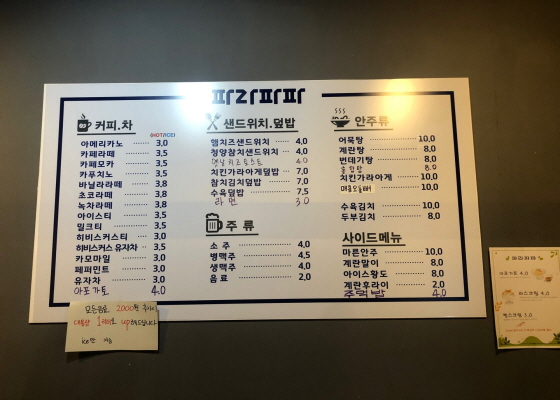 파라파파
커피.차
(HOT/ICE)
아메리카노 3,0
카페라떼 3,5
카페모카 3,5
카푸치노 3,5
바닐라라떼 3,8
초코라떼 3,8
녹차라떼 3,8
아이스티 3,5
밀크티 3,5
히비스커스티 3,0
히비스커스 유자차 3,5
카모마일 3,0
페퍼민트 3,0
유자차 3,0
아포가토 4.0
샌드위치.덮밥
햄치즈샌드위치 4,0
청양참치샌드위치 4,0
옛날치즈토스트 4.0
치킨가라아게덮밥 7,0
참치김치덮밥 7,0
수육덮밥 7,5
라면 3.0
주 류
소 주 4,0
병맥주 4,5
생맥주 4,0
음 료 2,0
안주류
어묵탕 10,0
계란탕 8,0
번데기탕 8,0
8.0
치킨가라아게 10,0
10,0
수육김치 10,0
두부김치 8,0
사이드메뉴
마른안주 10,0
계란말이 8,0
아이스황도 8,0
계란후라이 2,0
주먹밥 4.0
모든음료 2000원 추가시
1리터로 up해드립니다
ice만 가능
파라파파
아포가토 4.0
4.0
3.0